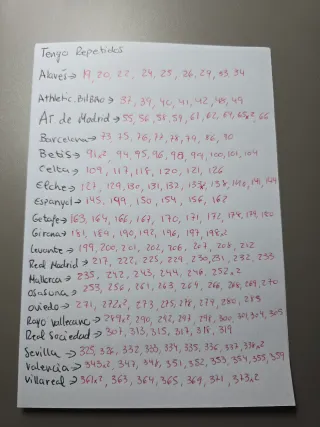 Tengo Repetidos
Alavés → 19, 20, 22, 24, 25, 26, 29, 33, 34
Athletic Bilbao → 37, 39, 40, 41, 42, 49
AT de Madrid → 55, 56, 58, 59, 61, 62, 66
Barcelona → 73 75, 76, 77, 78, 79, 86, 90
Betis → 94, 95, 96, 98, 100, 101, 104
Celta → 109, 117, 118, 120, 121, 126
Elche → 127, 129, 130, 131, 132
Espanyol → 145, 149, 150, 154, 156, 162
Getafe → 163, 164, 166, 167, 170, 171, 172, 180
Girona → 181, 184, 190, 192, 196, 197, 198x2
Levante → 199, 200, 201, 202, 206, 207, 208, 212
Real Madrid → 217, 222, 225, 229, 230, 231, 232, 233
Mallorca → 235, 242, 243, 244, 246, 252x2
Osasuna → 253, 256, 261, 263, 264, 269, 270
Oviedo → 271, 272x2, 273, 275, 278, 279, 280, 283
Rayo Vallecano → 289x2, 290, 292, 297, 298, 300, 303
Real Sociedad → 307, 313, 315, 317, 318, 319
Sevilla → 325, 326, 332, 333, 334, 335, 336, 337, 338x2
Valencia → 343x2, 347, 348, 351, 352, 353, 354, 355, 359
Villareal → 361x2, 363, 364, 365, 369, 371, 373x2